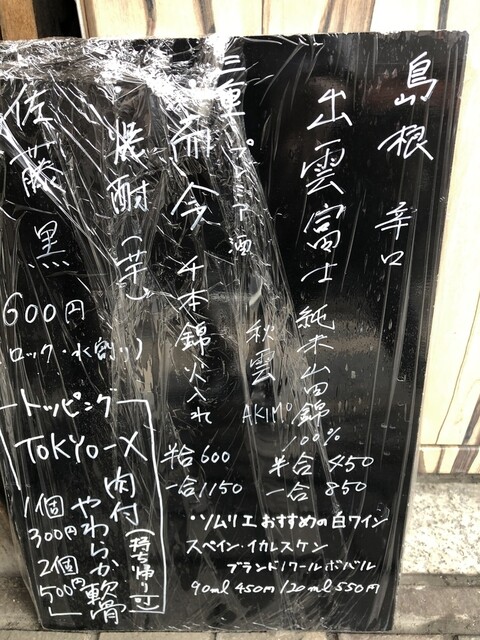 島根 辛口
出雲富士 純米山田錦100%
秋雲 AKIMO
半合 450
一合 850
三重 プレミア酒
而今 千本錦火入れ
半合 600
一合 1150
焼酎(芋)
佐藤 黒
600円
(ロック・水割り)
トッピング
TOKYO-X
肉付
やわらか軟骨
(持ち帰り可)
1個
300円
2個
500円
・ソムリエおすすめの白ワイン
スペイン・イカレスケン
ブランド/ワールボバル
90ml 450円/120ml 550円